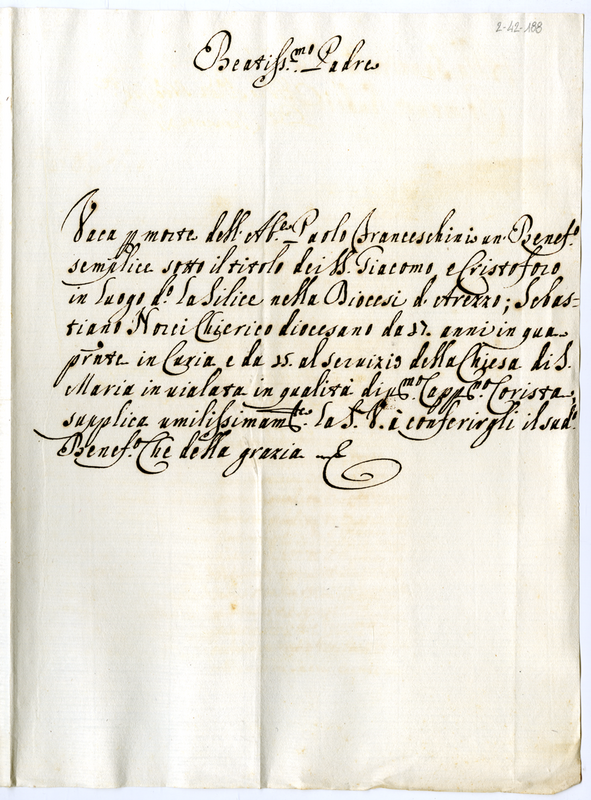 2-42-188
Beatiss.mo Padre
Vaca p morte dell'Ab.e Paolo Franceschini un Benef.o
semplice sotto il titolo dei SS. Giacomo, e Cristoforo
in luogo d.o La Silice nella Diocesi d'Arezzo; Sebas=
tiano Norci Chierico diocesano da 17. anni in qua
pr̃nte in Curia e da 15. al servizio della Chiesa di S.
Maria in vialata in qualità di p.mo Capp.no Corista,
supplica umilissimam.te La S. V. à conferirgli il sud.o
Benef.o Che della grazia